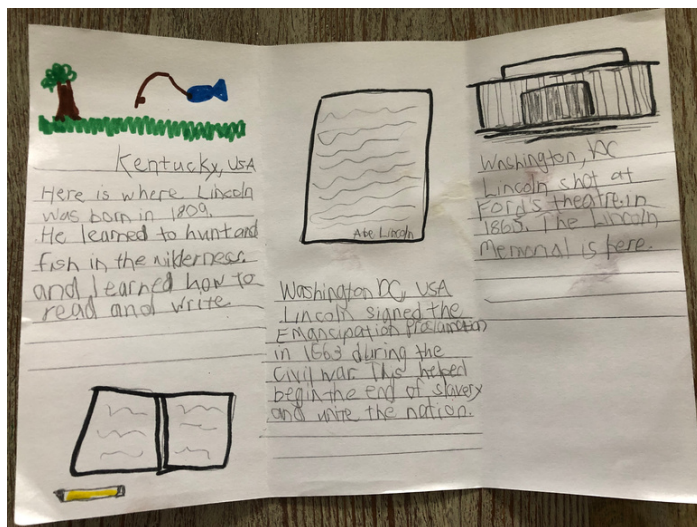 Kentucky, USA
Here is where Lincoln
was born in 1809.
He learned to hunt and
fish in the wilderness
and learned how to
read and write
Abe Lincoln
Washington DC, USA
Lincoln signed the
Emancipation Proclamation
in 1663 during the
Civil war This helped
begin the end of slavery
and unite the nation.
Washington, DC
Lincoln shot at
Ford's theatre in
1865. The Lincoln
Memorial is here.